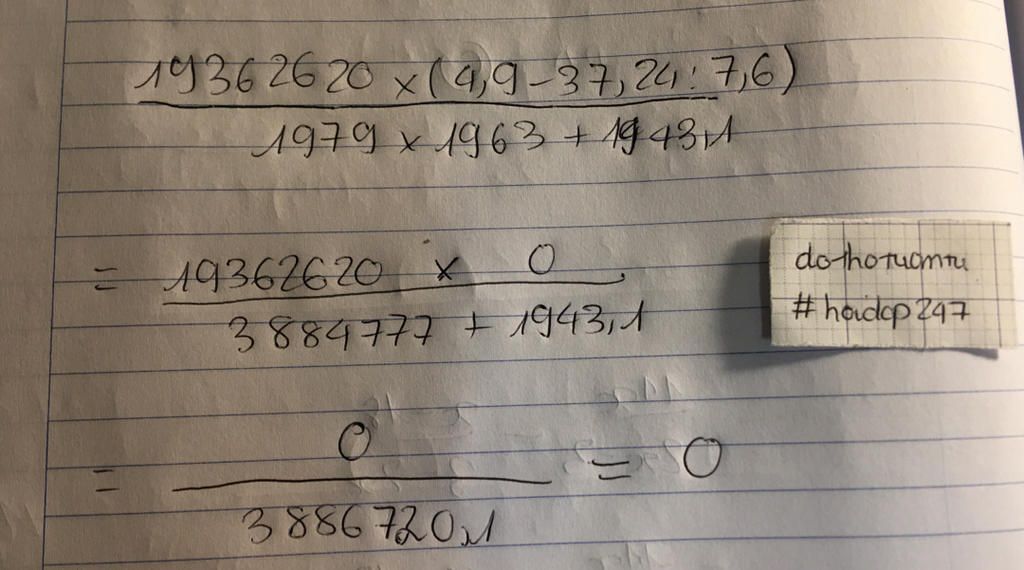 19362620 x (4,9 - 37,24 : 7,6)
1979 x 1963 + 1943,1
= 19362620 x 0
3884777 + 1943,1
= 0 = 0
3886720,1
dothotuomtu
#hoidap247